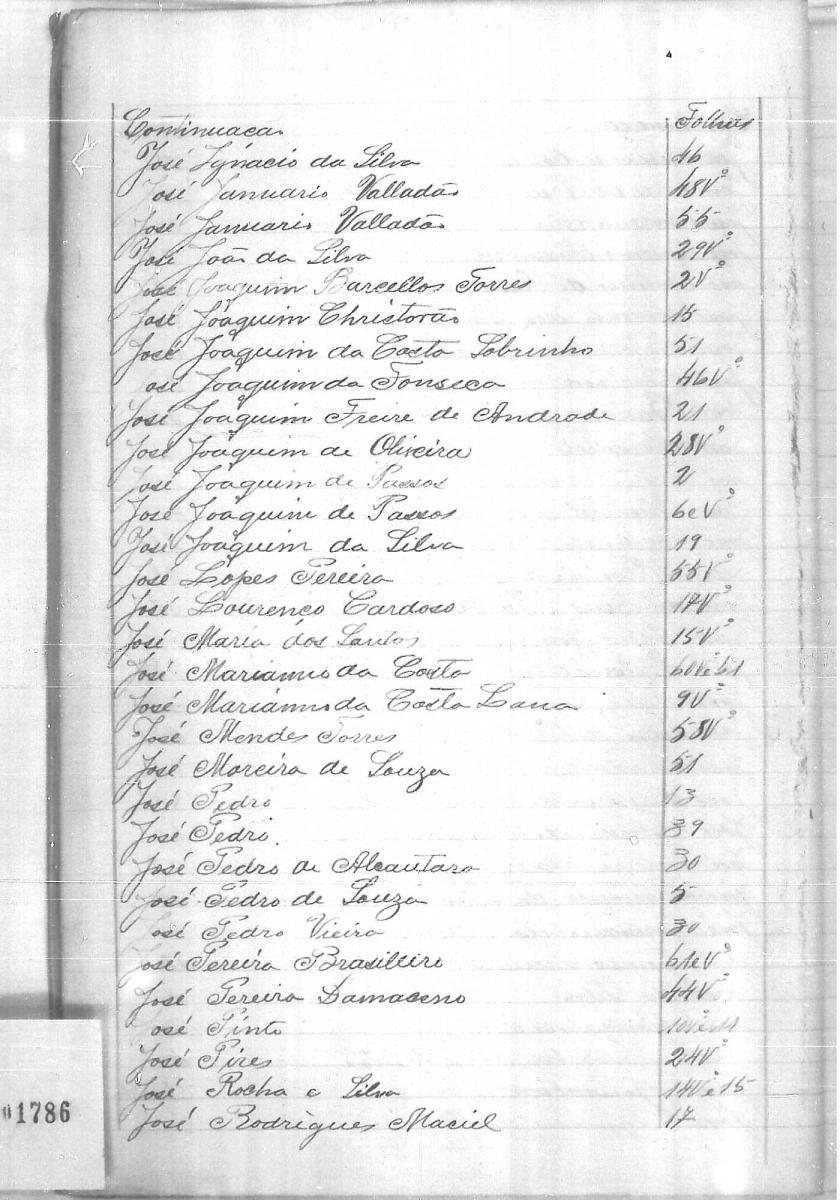 Continuaçaõ Folhas
José Ignacio da Silva 46
José Januario Valladão 48Vº
José Januario Valladão 55
José João da Silva 29Vº
José Joaquim Barcellos Torres 2Vº
José Joaquim Christovão 15
José Joaquim da Costa Sobrinho 51
José Joaquim da Fonseca 46Vº
José Joaquim Freire de Andrade 21
José Joaquim de Oliveira 28Vº
José Joaquim de Passos 2
José Joaquim de Passos 6eVº
José Joaquim da Silva 19
José Lopes Pereira 55Vº
José Lourenco Cardoso 17Vº
José Maria dos Santos 15Vº
José Marianno da Costa 60Vº e 61
José Marianno da Costa Lana 9Vº
José Mendes Torres 58Vº
José Moreira de Souza 51
José Pedro 13
José Pedro 39
José Pedro de Alcantara 30
José Pedro de Souza 5
José Pedro Vieira 30
José Pereira Brasileiro 61eVº
José Pereira Damaceno 44Vº
José Pinto 10Vº e 11
José Pires 24Vº
José Rocha e Silva 14Vº e 15
José Rodrigues Maciel 17
01786